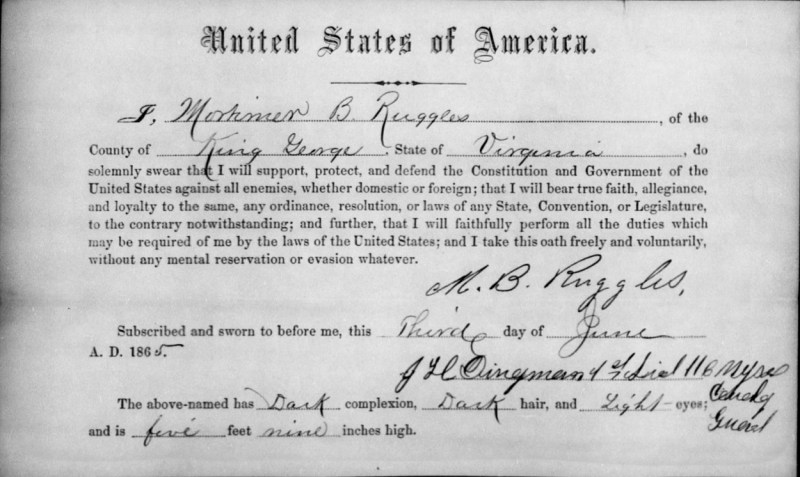 United States of America.
I, Mortimer B. Ruggles, of the
County of King George. State of Virginia, do
solemnly swear that I will support, protect, and defend the Constitution and Government of the
United States against all enemies, whether domestic or foreign; that I will bear true faith, allegiance,
and loyalty to the same, any ordinance, resolution, or laws of any State, Convention, or Legislature,
to the contrary notwithstanding; and further, that I will faithfully perform all the duties which
may be required of me by the laws of the United States; and I take this oath freely and voluntarily,
without any mental reservation or evasion whatever.
M. B. Ruggles,
Subscribed and sworn to before me, this Third day of June
A. D. 1865.
J H Dingman 1st Lieut 116
The above-named has Dark complexion, Dark hair, and Light eyes;
Guard
and is five feet nine inches high.